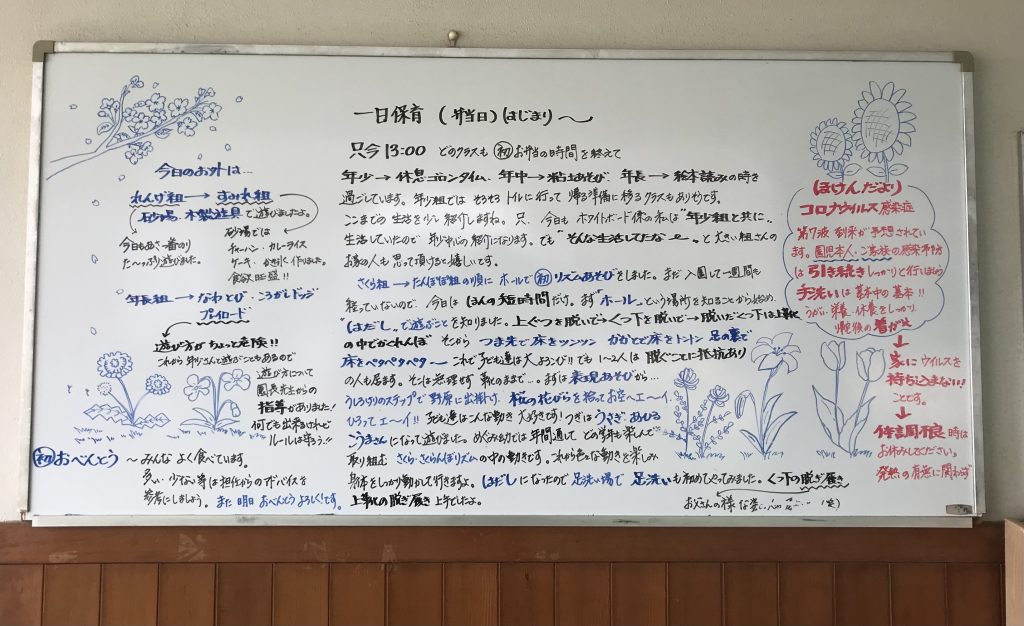 一日保育 (弁当日) はじまり〜
只今13:00 どのクラスも ㊗初 お弁当の時間を終えて
年少→休息ゴロンタイム、年中→粘土あそび、年長→絵本読みの時を
過ごしています。年少組では そろそろ トイレに行って 帰る準備に移るクラスもありそです。
ここまでの 生活を少し紹介しますね。只、今日も ホワイトボード係の私は"年少組と共に"
生活していたので 年少中心の紹介になります。でも"そんな生活してたな〜"と大きい組さんの
お家の人も 思って頂けると嬉しいです。
さくら組→たんぽぽ組の順に ホールで 初 リズムあそびをしました。まだ入園して一週間も
経っていないので、今日は ほんの短時間だけ。まず"ホール"という場所を知ることから始め
"はだし"で遊ぶことを知りました。上ぐつを脱いで→くつ下を脱いで→脱いだくつ下は上靴
の中でかくれんぼ そこから つま先で床をツンツン かかとで床をトントン 足の裏で
床をペタペタペタ〜 これで子ども達は大よろこび!! でも 1〜2人は 脱ぐことに抵抗あり
の人も居ます。そこは無理せず 靴のままで…。まずは 表現あそびから…
うしろ
のステップで 野原に出掛け 桜の花びらを拾って お空へエ〜イ
ひろってエ〜イ!! 子ども達はこんな動き 大好きです! つぎは うさぎ、あひる
こうまさん になって遊びました。めぐみ
では 年間通して どの学年も楽しんで
取り組む さくら・さくらんぼリズム の中の動きです。これから色んな動きを楽しみ
身体をしっかり動かして行きますよ。"はだし"になったので 足洗い場で 足洗いも初めてやってみました。くつ下の脱ぎ履き
上靴の脱ぎ履き 上手でしたよ。
お父さんの様な
(笑)
今日のお外は…
れんげ組→すみれ組
砂場、木製遊具で遊びましたよ。
今日もあさ一番のり
た〜っぷり遊びました。
砂場では
チャーハン・カレーライス
ケーキ・かき氷 作りました。
食欲旺盛!!
年長組→なわとび・ころがしドッジ
プレイロード
遊び方がちょっと危険!!
これから 年少さんと遊ぶこともあるので
遊び方について
園長先生からの
指導がありました!
何でも出来るけれど
ルールは守ろう!!
初 おべんとう 〜みんな よく食べています。
多い・少ない等は 担任からのアドバイスを
参考にしましょう。また 明日 おべんとうよろしく!です。
ほけんだより
コロナウイルス感染症
第7波 到来が予想されてい
ます。園児本人、ご家族の感染予防
は 引き続きしっかりと行いましょう
手洗いは基本中の基本!!
うがい・栄養・休養をしっかり
帰宅後の着がえ
↓
家にウイルスを
持ち込まない!!
ことです。
↓
体調不良 時は
お休みください。
発熱の有無に関わらず